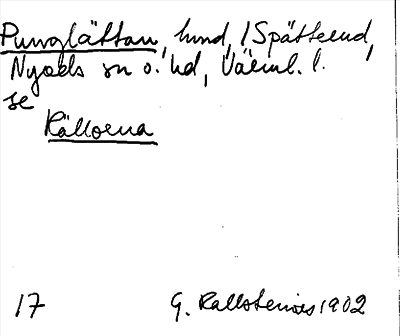 Punglättan, lund, / Spätterud,
Nyeds sn o. hd, Värml. l.
se
Källorna
17 G. Kallstenius 1902